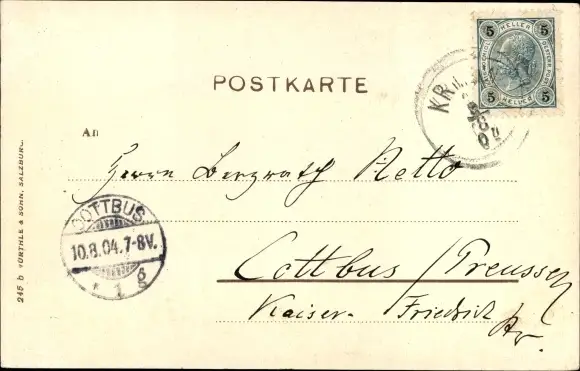 POSTKARTE
5 HELLER 5
5 HELLER 5
KR
An
Herrn Bergrath Netto
COTTBUS
10.8.04.7-8V.
* 1 g
Cottbus / Preussen
Kaiser- Friedrich
Str.
245 b WÜRTHLE & SOHN, SALZBURG.